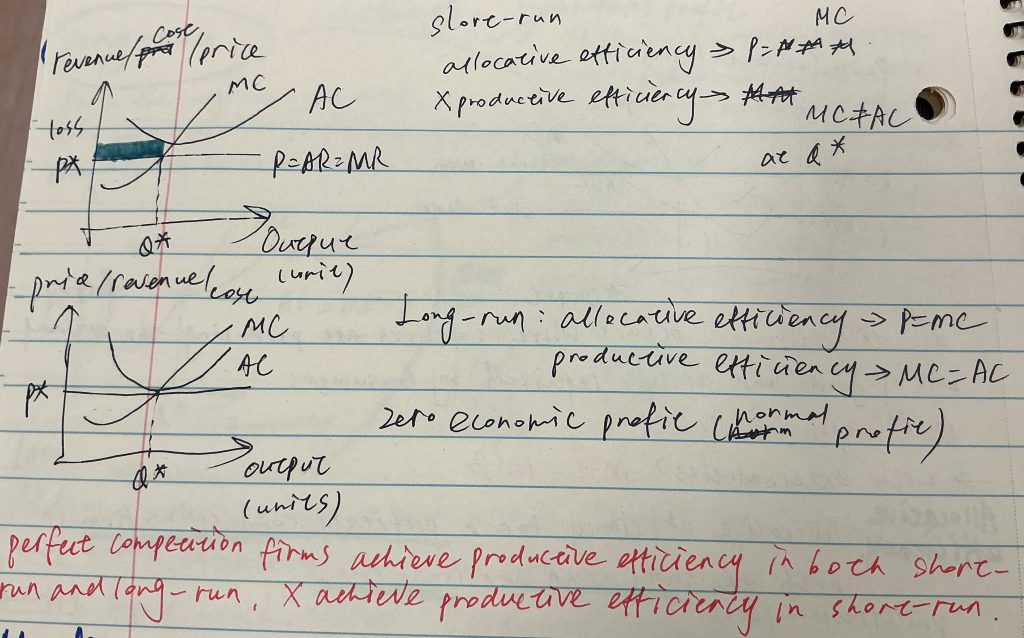 revenue/cost/price
MC
AC
loss
P*
P=AR=MR
Q*
Output
(unit)
short-run
allocative efficiency → P=MC
X productive efficiency →
MC≠AC
at Q*
price/revenue/cost
MC
AC
P*
Q*
output
(units)
Long-run: allocative efficiency → P=MC
productive efficiency → MC=AC
zero economic profit (normal profit)
perfect competition firms achieve productive efficiency in both short-
run and long-run, X achieve productive efficiency in short-run.